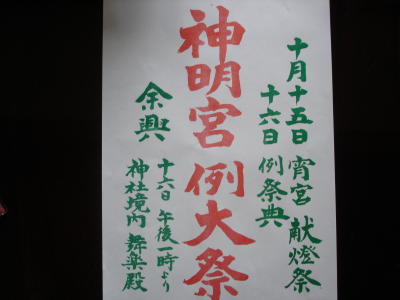 十月十五日 宵宮 献燈祭
十六日 例祭典
神明宮 例大祭
余興
十六日 午後一時より
神社境内 舞楽殿